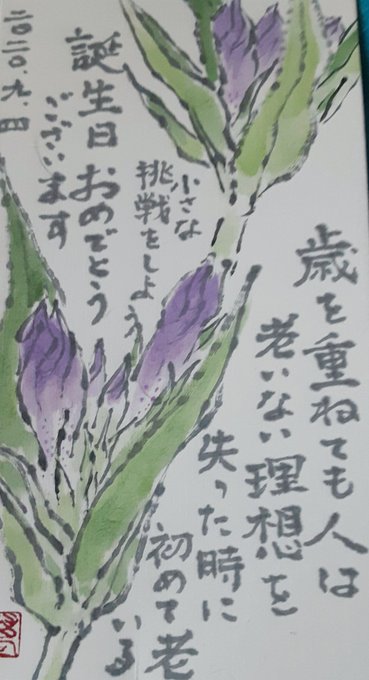 歳を重ねても人は
老いない理想を
失った時に
初めて老
いる
小さな
挑戦をしよう
誕生日おめでとう
ございます
二〇二〇.九.四